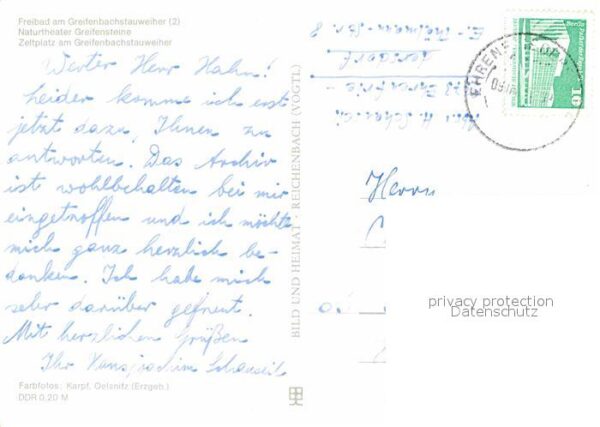 Freibad am Greifenbachstauweiher (2)
Naturtheater Greifensteine
Zeltplatz am Greifenbachstauweiher
Werter Herr Hahn!
Leider komme ich erst
jetzt dazu, Ihnen zu
antworten. Das Archiv
ist wohlbehalten bei mir
eingetroffen und ich möchte
mich ganz herzlich be-
danken. Ich habe mich
sehr darüber gefreut.
Mit herzlichen Grüßen
Ihr Hansjoachim
Farbfotos: Karpf, Oelsnitz (Erzgeb.)
DDR 0,20 M
BILD UND HEIMAT · REICHENBACH (VOGTL)
8
10
Herrn
privacy protection
Datenschutz